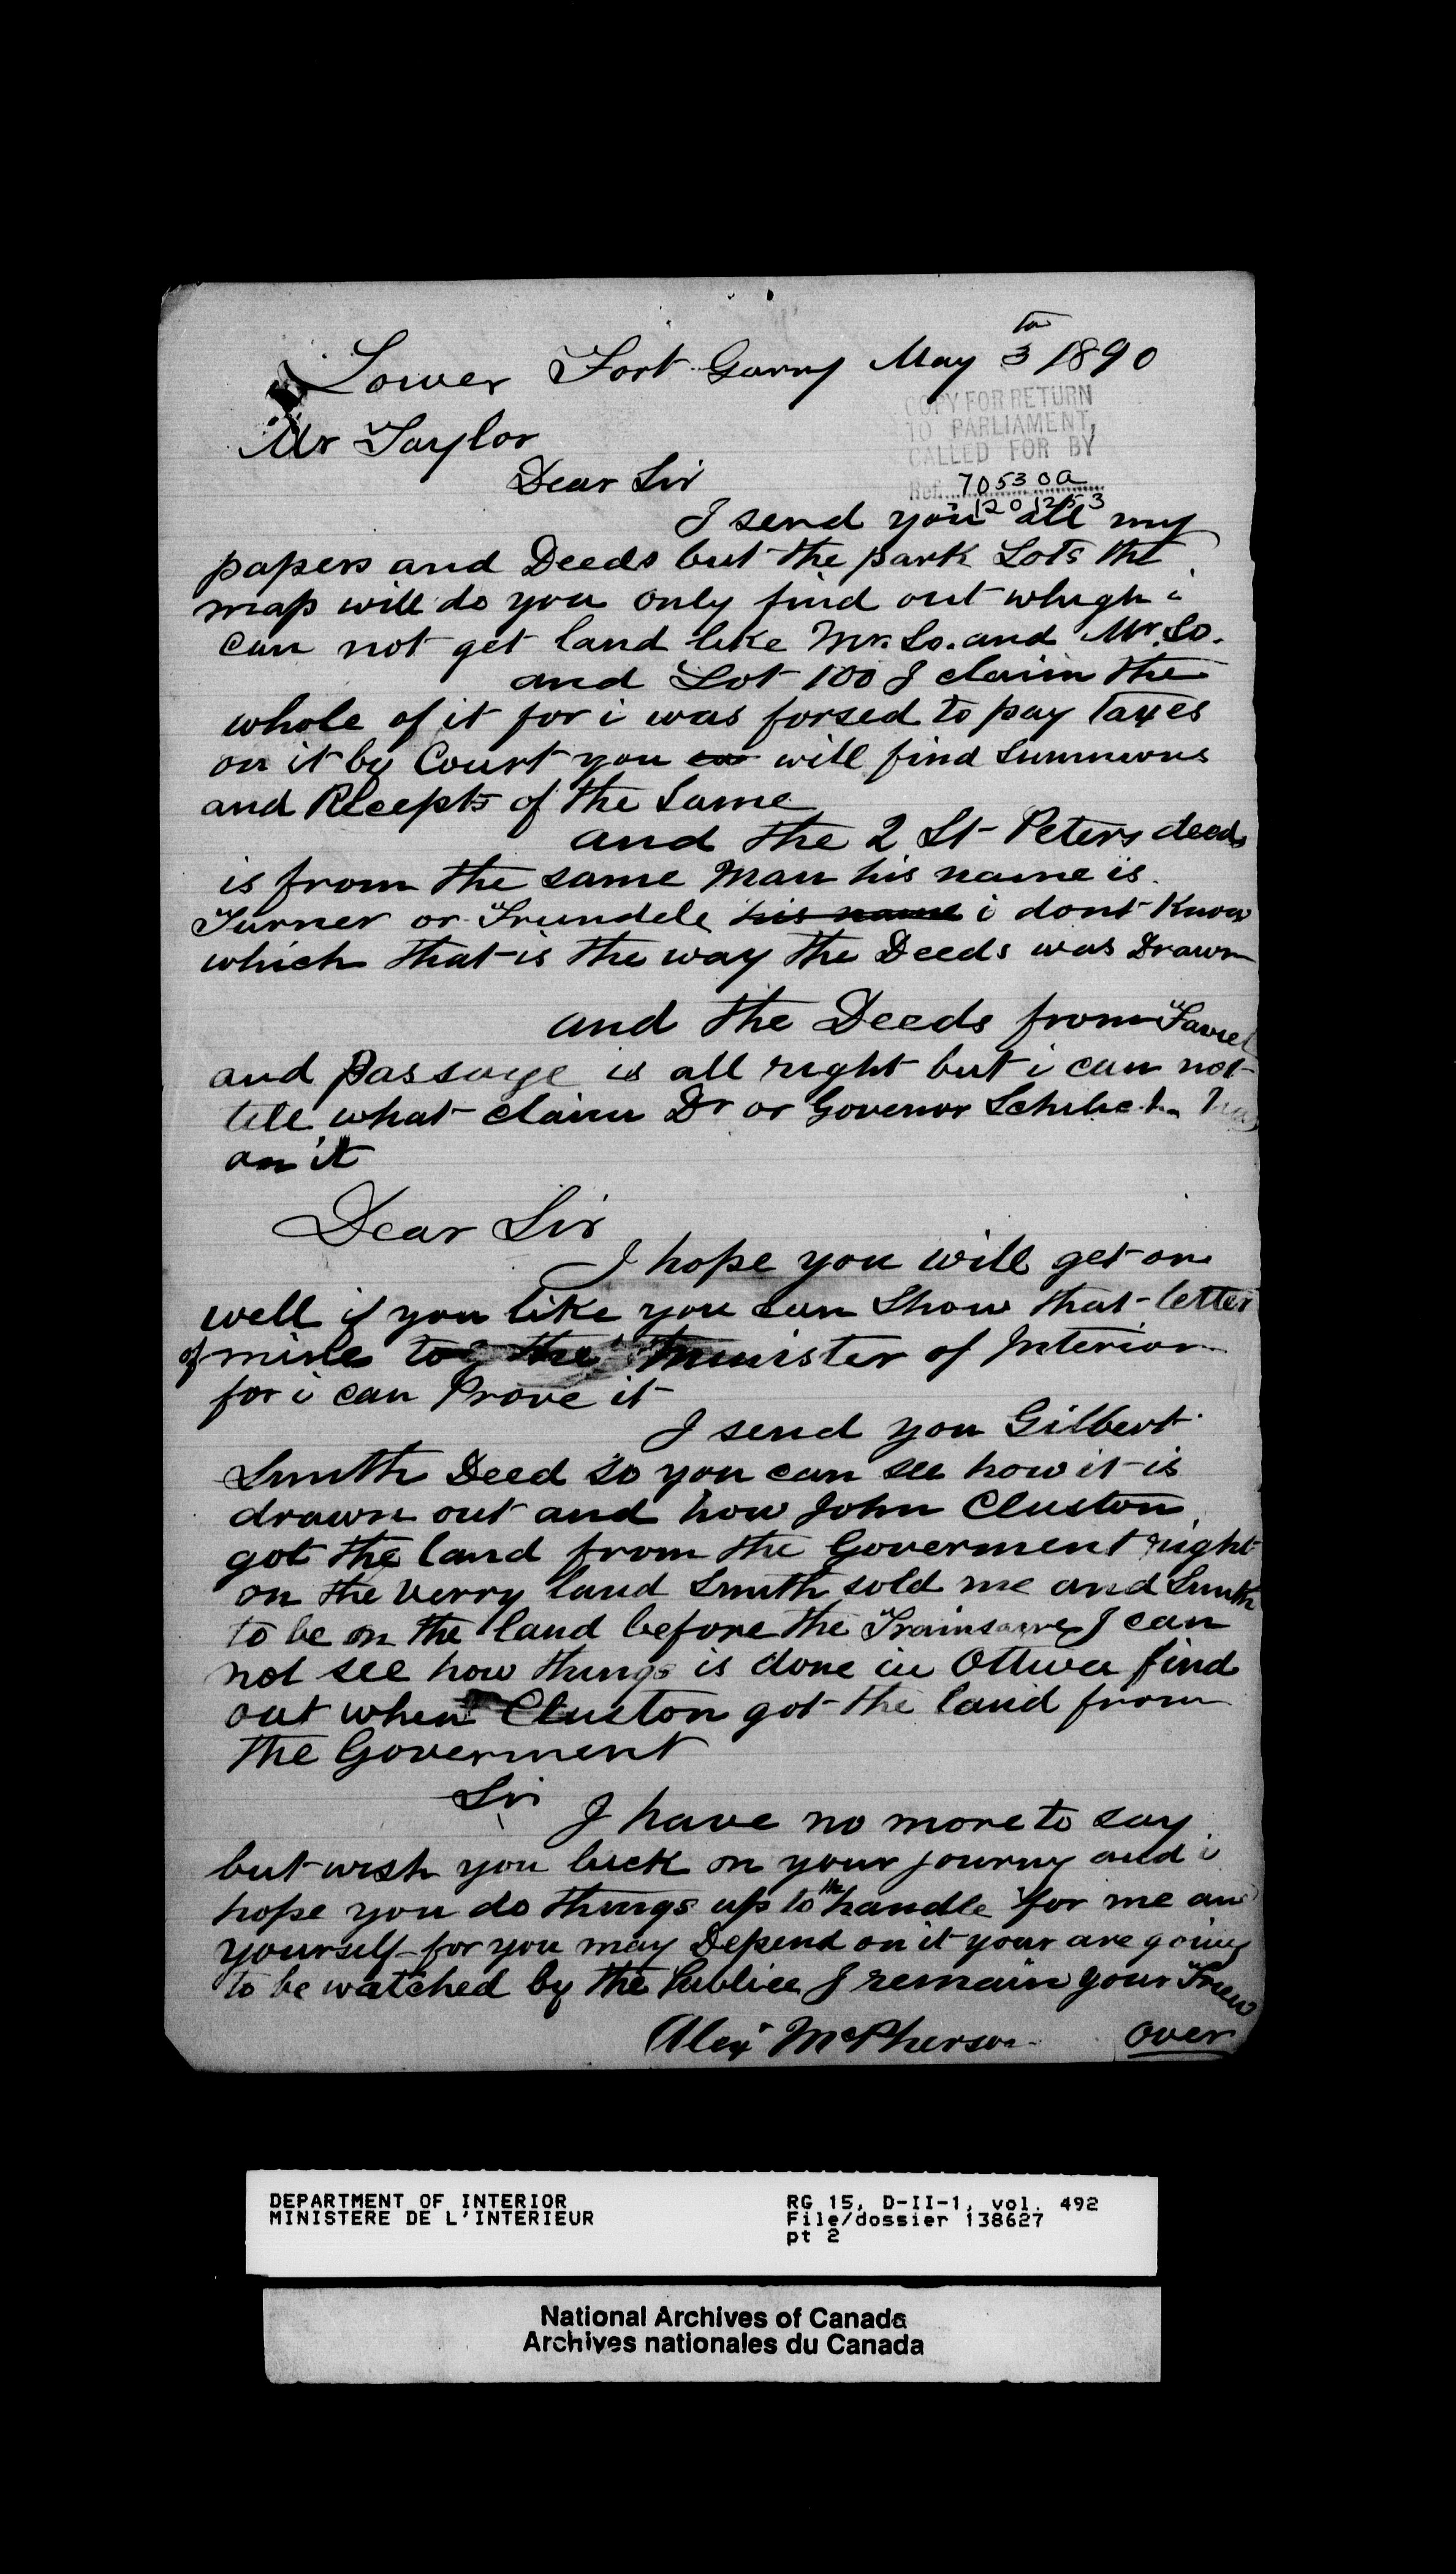 Lower Fort Garry May 3 to 1890
COPY FOR RETURN
TO PARLIAMENT,
CALLED FOR BY
Ref. 70530a
120 1253
Mr Taylor
Dear Sir
I send you all my
papers and Deeds but the park Lots the
map will do you only find out whigh i
can not get land like Mr. So. and Mr. So.
and Lot 100 I claim the
whole of it for i was forsed to pay Taxes
on it by Court you will find Summons
and Receepts of the Same
and the 2 St Peters deeds
is from the same Man his name is
Turner or Trundele his name i dont Know
which that is the way the Deeds was Drawn
and the Deeds from
and passage is all right but i can not
tell what claim Dr or Govenor
on it
Dear Sir
I hope you will get on
well if you like you can Show that letter
of mine to the Minister of Interior
for i can Prove it
I send you Gilbert
Smith Deed So you can see how it is
drawn out and how John Cluston
got the land from the Goverment right
on the verry land Smith sold me and Smith
to be on the land before the I can
not see how things is done in Ottwa find
out when Cluston got the land from
the Goverment
Sir I have no more to say
but wish you luck on your journy and i
hope you do things up to the handle for me and
yourself for you may Depend on it your are going
to be watched by the Publice I remain your Trew
Alex McPherson over
DEPARTMENT OF INTERIOR
MINISTERE DE L'INTERIEUR
RG 15, D-II-1, vol. 492
File/dossier 138627
pt 2
National Archives of Canada
Archives nationales du Canada